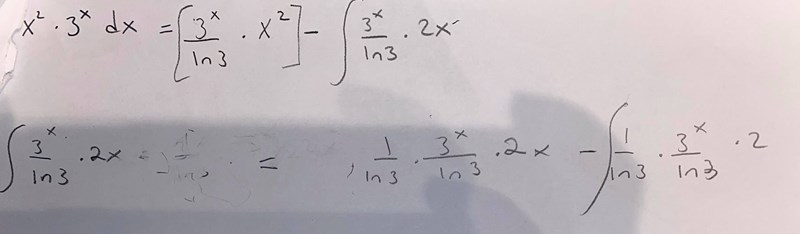 x² · 3ˣ dx = [3ˣ/ln3 · x²] - ∫ 3ˣ/ln3 · 2x
∫ 3ˣ/ln3 · 2x = 1/ln3 · 3ˣ/ln3 · 2x - ∫ 1/ln3 · 3ˣ/ln3 · 2